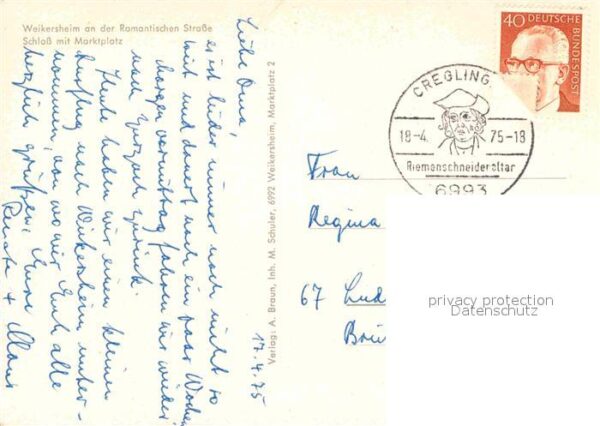 Weikersheim an der Romantischen Straße
Schloß mit Marktplatz
Liebe Oma,
es ist leider immer noch nicht so
weit und dauert noch ein paar Wochen
morgen vormittag fahren wir wieder
nach zurück.
Heute haben wir einen kleinen
Ausflug nach Weikersheim unter-
nommen, von wo wir Euch alle
herzlich grüßen, Eure
Renate + Klaus
17.4.75
Verlag: A. Braun, Inh. M. Schuler, 6992 Weikersheim, Marktplatz 2
40 DEUTSCHE
BUNDESPOST
CREGLING
18-4. 75-18
Riemenschneideraltar
6993
Frau
Regina
67 Lud
Brü
privacy protection
Datenschutz